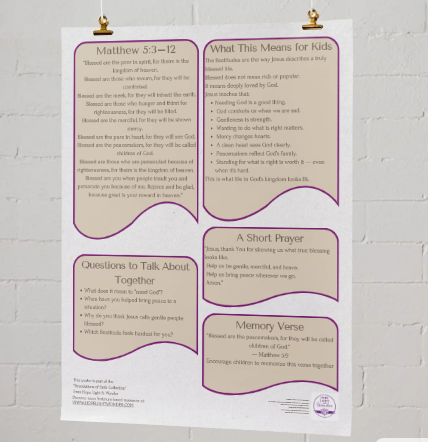 Matthew 5:3–12
"Blessed are the poor in spirit, for theirs is the
kingdom of heaven.
Blessed are those who mourn, for they will be
comforted.
Blessed are the meek, for they will inherit the earth.
Blessed are those who hunger and thirst for
righteousness, for they will be filled.
Blessed are the merciful, for they will be shown
mercy.
Blessed are the pure in heart, for they will see God.
Blessed are the peacemakers, for they will be called
children of God.
Blessed are those who are persecuted because of
righteousness, for theirs is the kingdom of heaven.
Blessed are you when people insult you and
persecute you because of me. Rejoice and be glad,
because great is your reward in heaven."
What This Means for Kids
The Beatitudes are the way Jesus describes a truly
blessed life.
Blessed does not mean rich or popular.
It means deeply loved by God.
Jesus teaches that:
• Needing God is a good thing.
• God comforts us when we are sad.
• Gentleness is strength.
• Wanting to do what is right matters.
• Mercy changes hearts.
• A clean heart sees God clearly.
• Peacemakers reflect God's family.
• Standing for what is right is worth it — even
when it's hard.
This is what life in God's kingdom looks like.
Questions to Talk About
Together
• What does it mean to "need God"?
• When have you helped bring peace to a
situation?
• Why do you think Jesus calls gentle people
blessed?
• Which Beatitude feels hardest for you?
A Short Prayer
"Jesus, thank You for showing us what true blessing
looks like.
Help us be gentle, merciful, and brave.
Help us bring peace wherever we go.
Amen."
Memory Verse
"Blessed are the peacemakers, for they will be called
children of God."
— Matthew 5:9
Encourage children to memorize this verse together
This poster is part of the